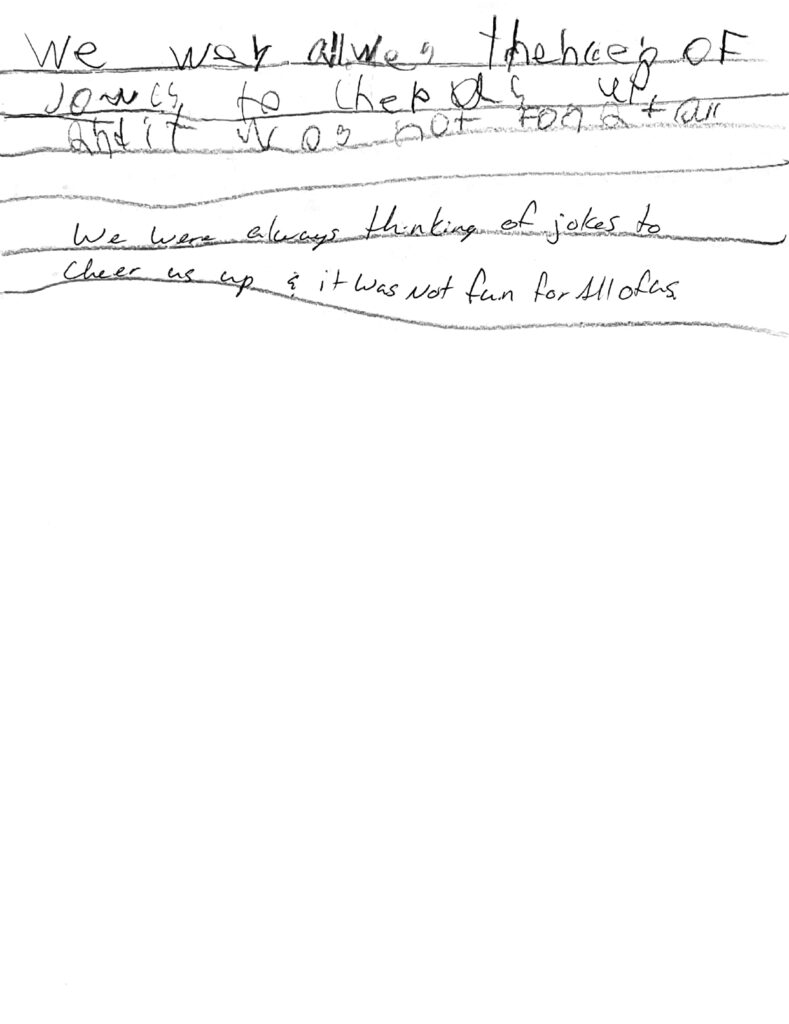 We wer allwes of
to chep us up,
and it was not fon at all
We were always thinking of jokes to
Cheer us up & it was Not fun for All of us.